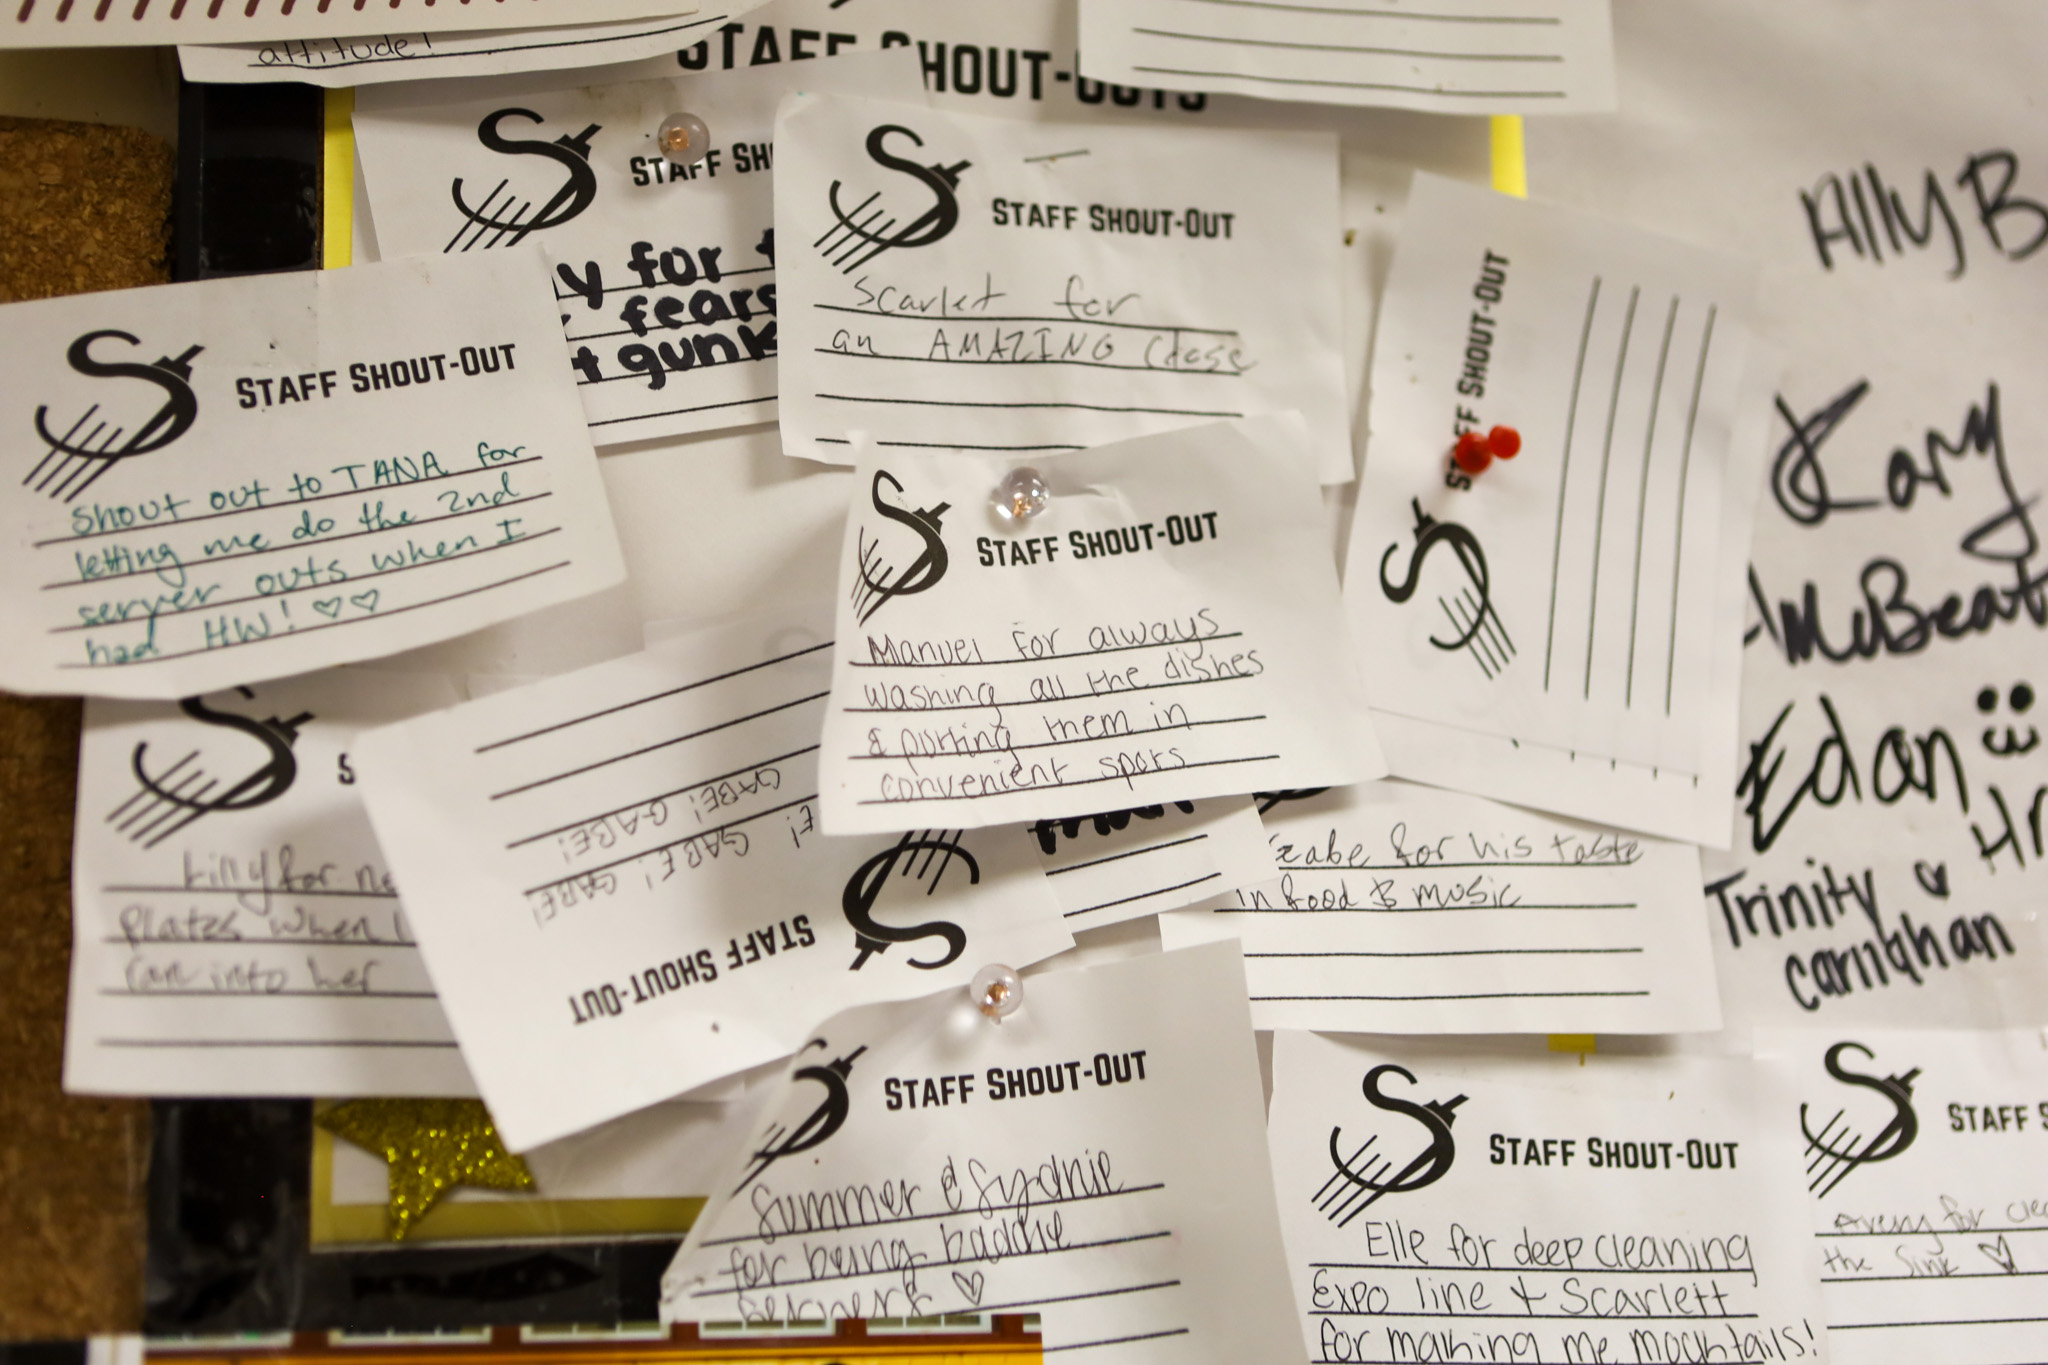 attitude!
STAFF SHOUT-OUTS
STAFF SH
y for
fears
gunk
STAFF SHOUT-OUT
Scarlet for
an AMAZING close
STAFF SHOUT-OUT
Ally B
Kory
McBeat
Edan
Hr
Trinity
Carnahan
STAFF SHOUT-OUT
Shout out to TANA for
letting me do the 2nd
server outs when I
had HW! ♡♡
STAFF SHOUT-OUT
Manuel for always
washing all the dishes
& putting them in
convenient spots
S
Lilly for ne
plates when I
ran into her
STAFF SHOUT-OUT
E! GABE! GABE! GABE!
GABE! GABE!
Gabe for his taste
in food & music
STAFF SHOUT-OUT
Summer & Sydnie
for being baddie
STAFF SHOUT-OUT
Elle for deep cleaning
Expo line + Scarlett
for making me mocktails!
STAFF S
Avery for cle
the sink ♡